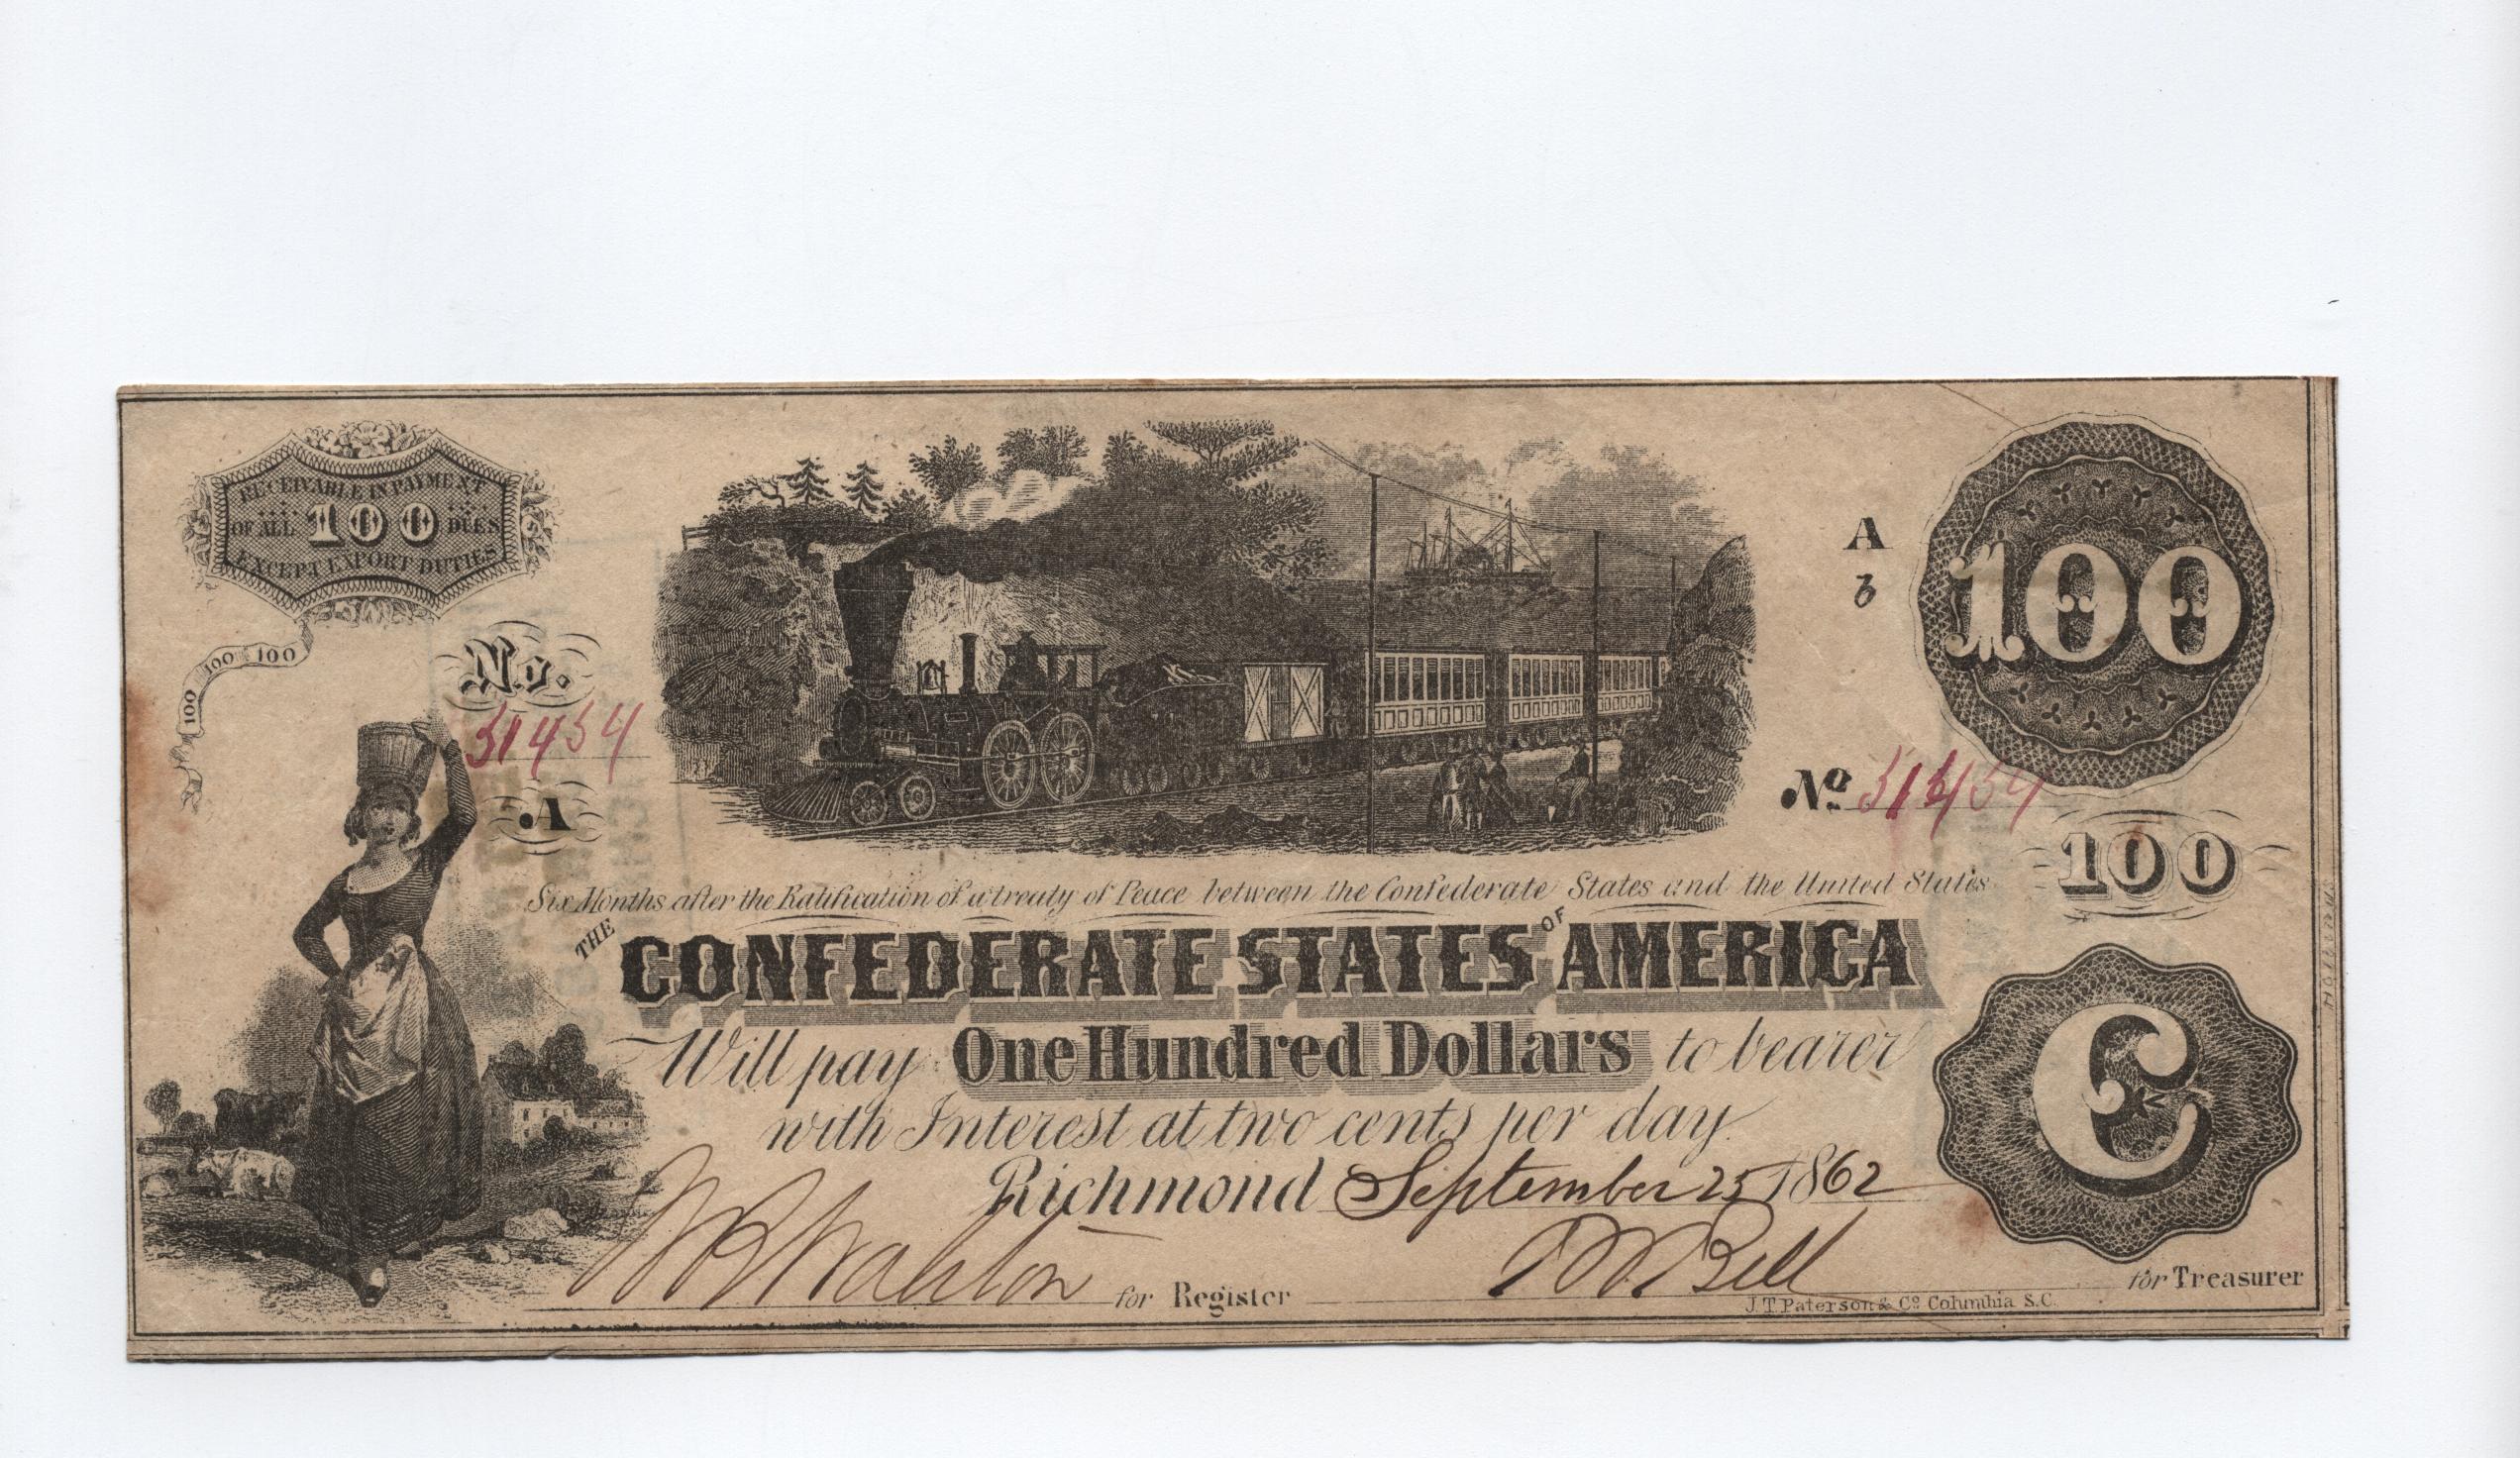 RECEIVABLE IN PAYMENT
OF ALL 100 DUES
EXCEPT EXPORT DUTIES
100 100 100
No.
51454
A
A
b
100
No 51454
100
Six Months after the Ratification of a treaty of Peace between the Confederate States and the United States
THE CONFEDERATE STATES OF AMERICA
Will pay One Hundred Dollars to bearer
with Interest at two cents per day.
Richmond September 25 1862
C
for Register
Bell for Treasurer
J.T. Paterson & Co Columbia S.C.